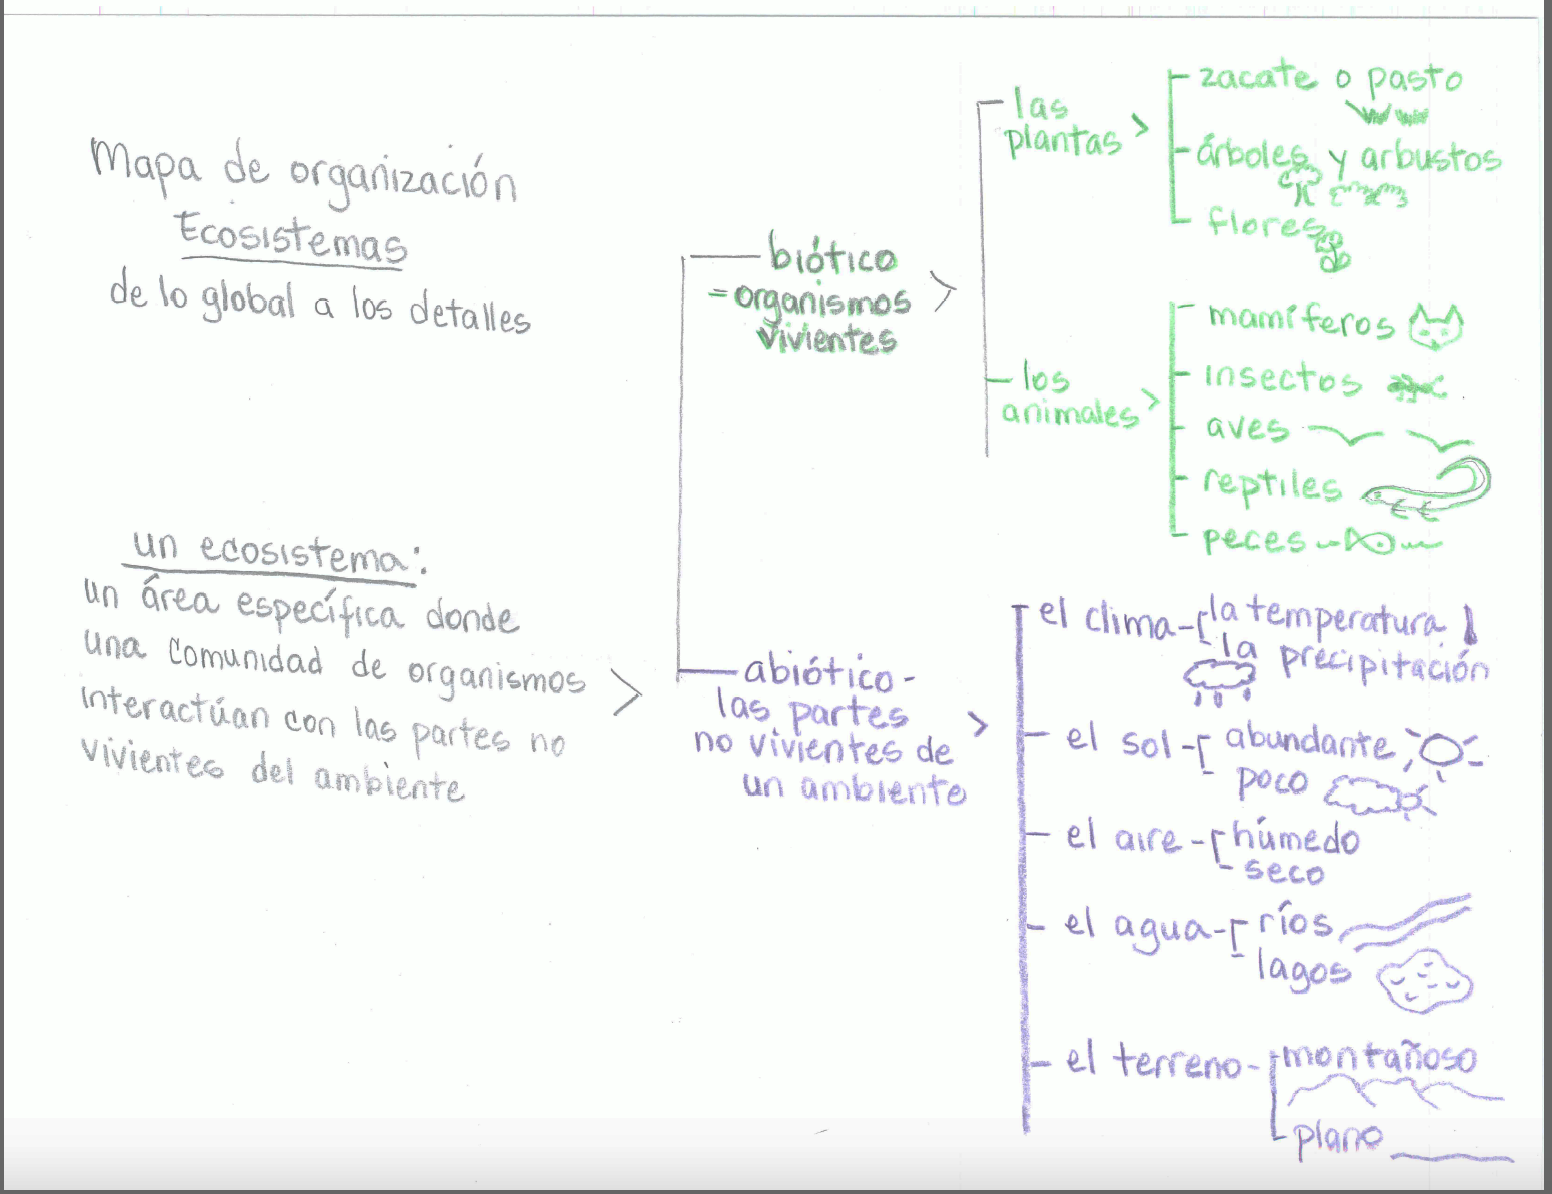 Mapa de organización
Ecosistemas
de lo global a los detalles
un ecosistema:
un área específica donde
una comunidad de organismos
interactúan con las partes no
vivientes del ambiente
biótico
= organismos
vivientes
las
plantas
zacate o pasto
árboles y arbustos
flores
los
animales
mamíferos
insectos
aves
reptiles
peces
abiótico -
las partes
no vivientes de
un ambiente
el clima - la temperatura
la precipitación
el sol - abundante
poco
el aire - húmedo
seco
el agua - ríos
lagos
el terreno - montañoso
plano